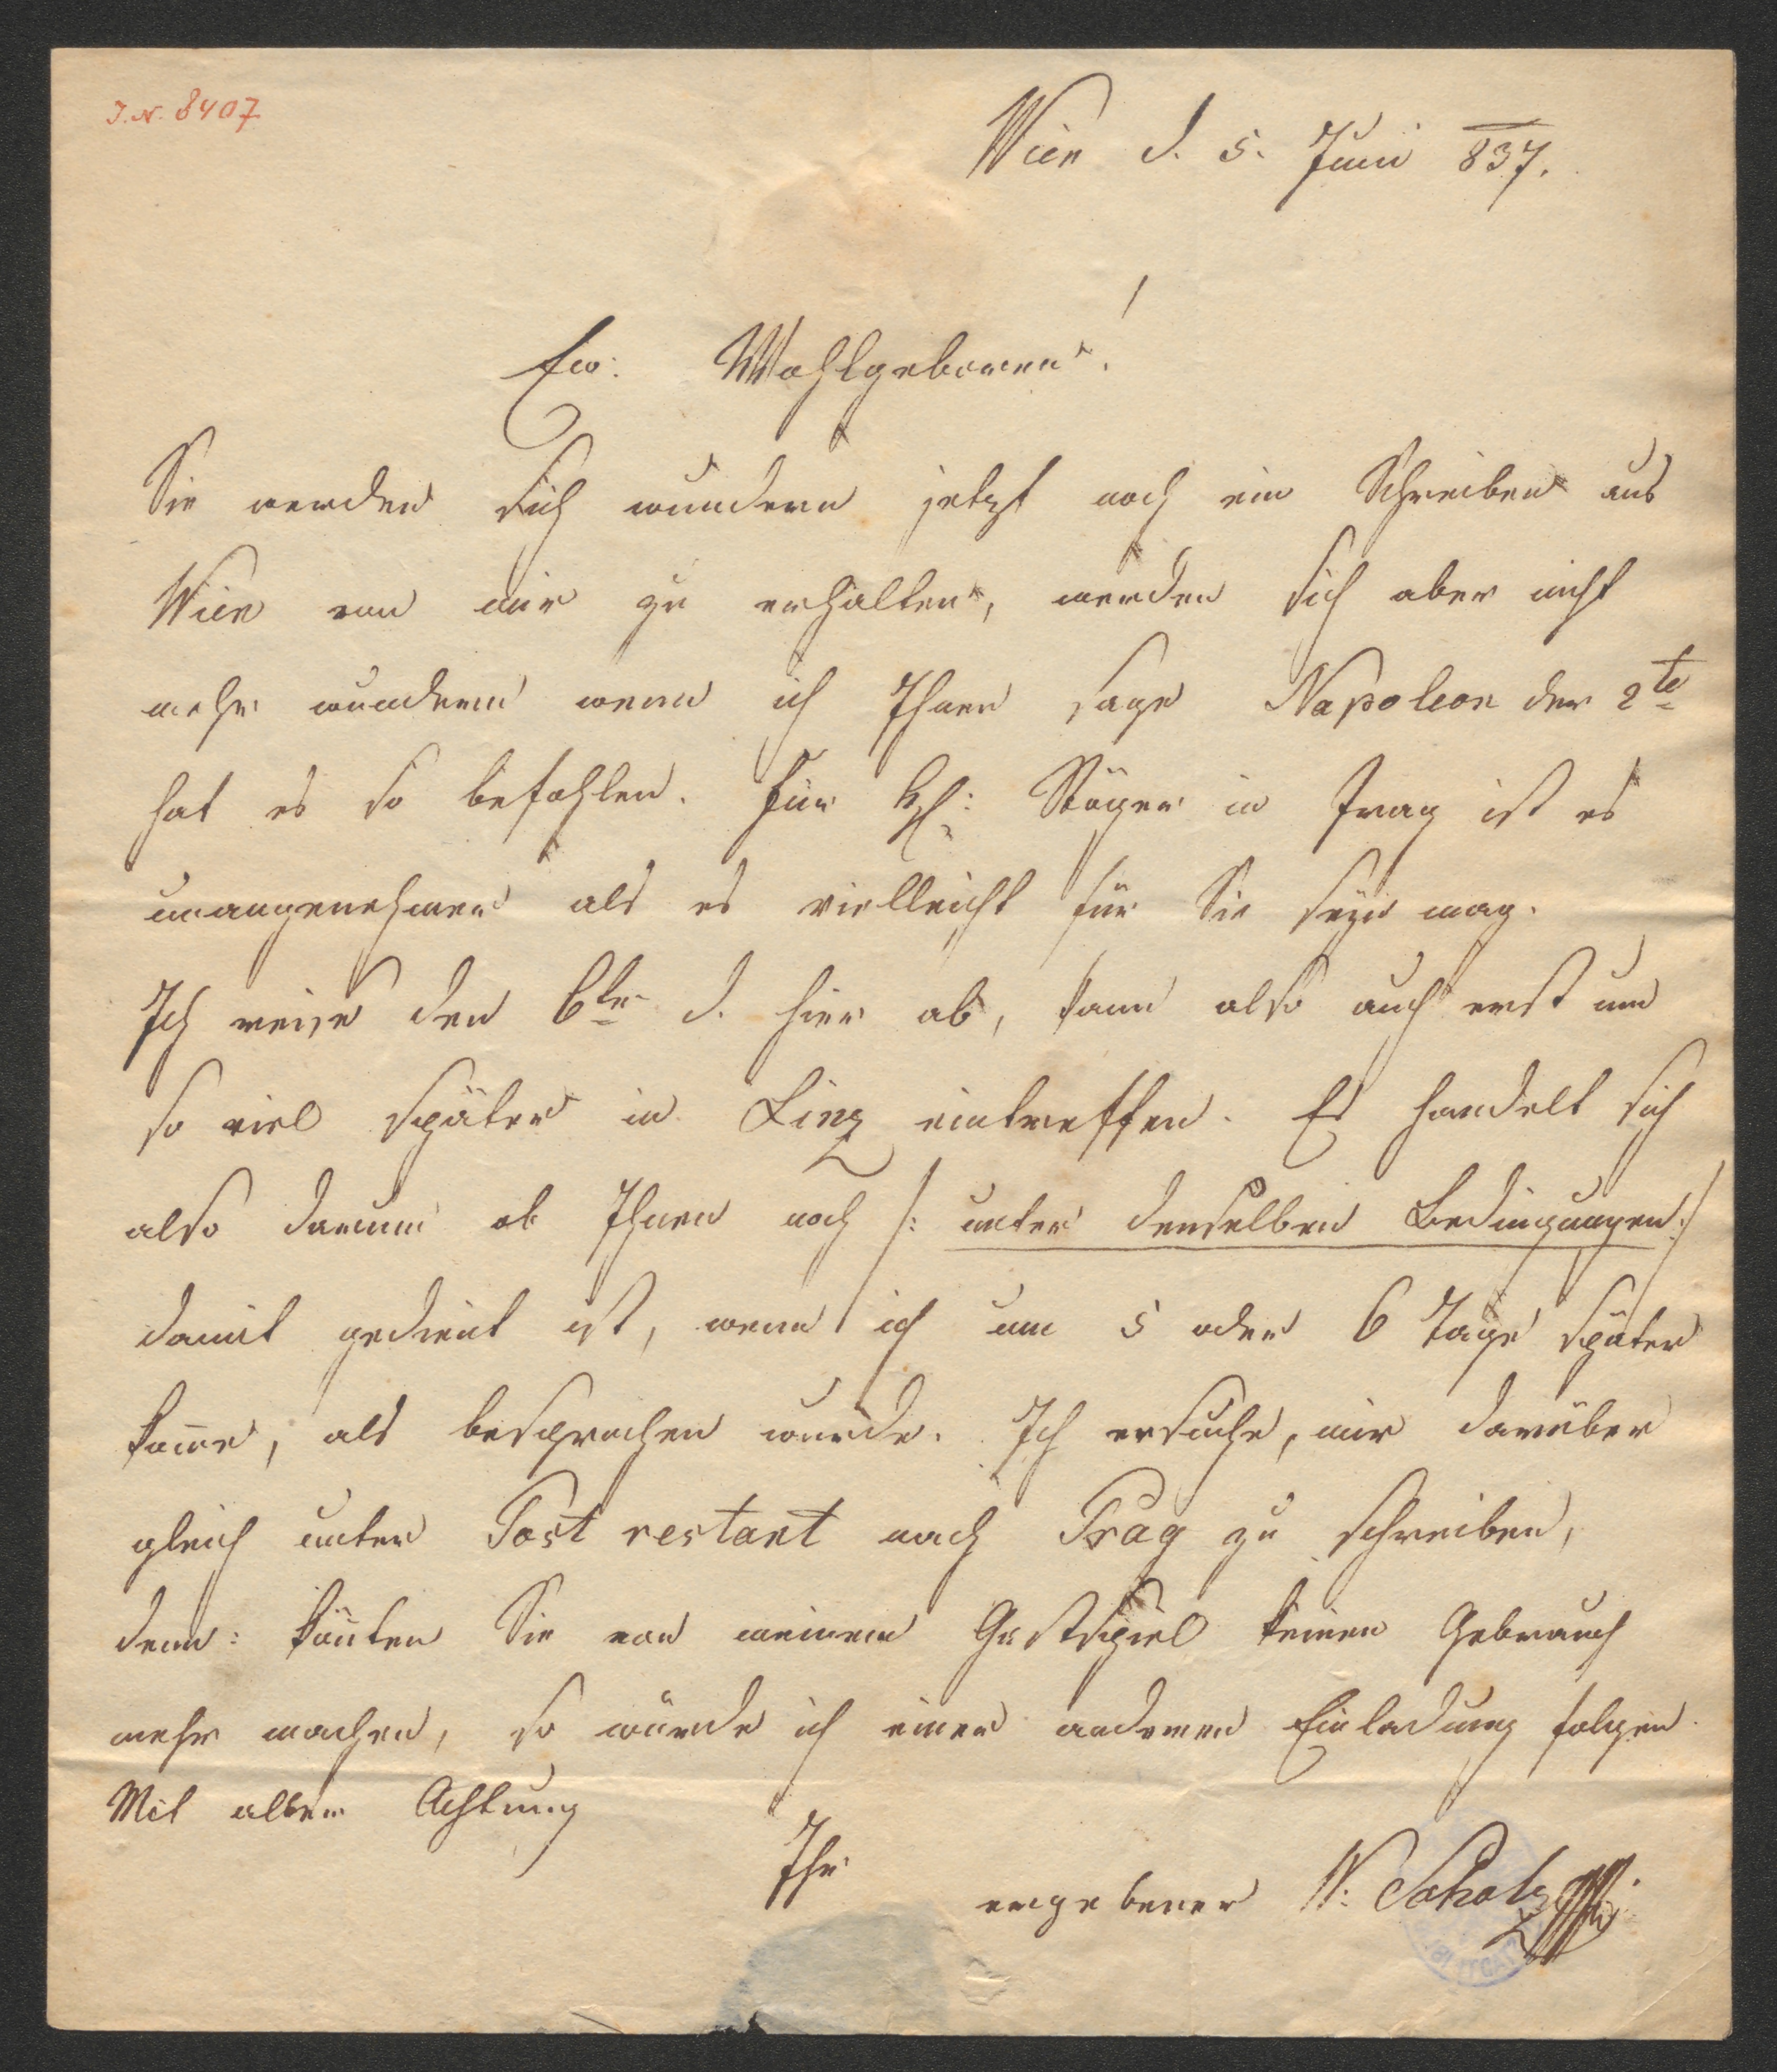 J.N. 8407
Wien d. 5. Juni 837.
Ew: Wohlgeboren!
Sie werden sich wundern jetzt noch ein Schreiben aus
Wien von mir zu erhalten, werden sich aber nicht
mehr wundern wenn ich Ihnen sage Napoleon der 2te
hat es so befohlen. Für H: Stöger in Prag ist es
unangenehmer als es vielleicht für Sie seyn mag.
Ich reise den 6ten d. hier ab, kann also auch erst um
so viel später in Linz eintreffen. Es handelt sich
also darum ob Ihnen noch /: unter denselben Bedingungen :/
damit gedient ist, wenn ich um 5 oder 6 Tage später
kom̄e, als besprochen wurde. Ich ersuche, mir darüber
gleich unter Post restant nach Prag zu schreiben,
denn: kön̄ten Sie von meinem Gastspiel keinen Gebrauch
mehr machen, so würde ich einer anderen Einladung folgen.
Mit aller Achtung
Ihr
ergebener W: Scholz